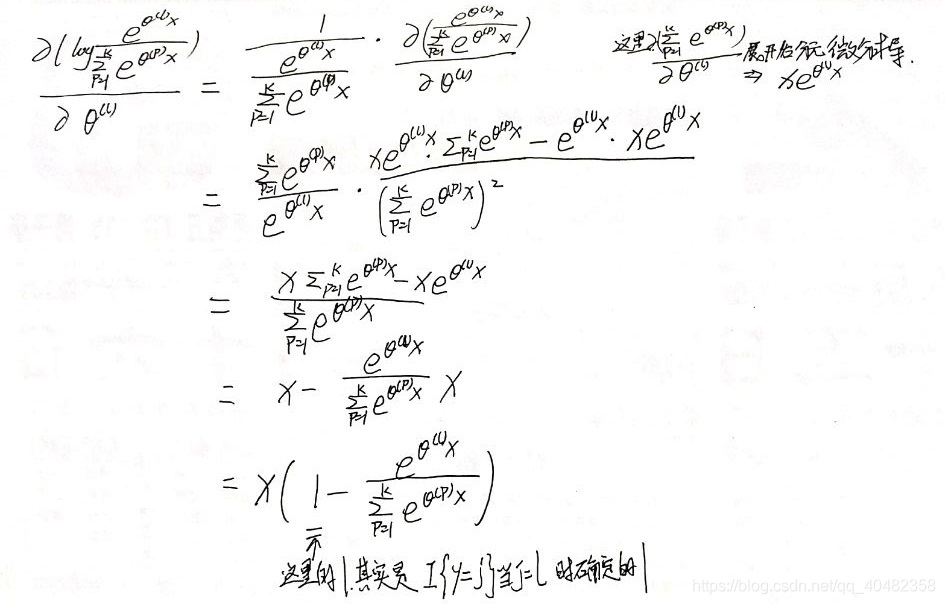 ∂(log e^{θ^{(l)}x} / Σ_{p=1}^{k} e^{θ^{(p)}x}) / ∂θ^{(l)} = 1 / (e^{θ^{(l)}x} / Σ_{p=1}^{k} e^{θ^{(p)}x}) · ∂(e^{θ^{(l)}x} / Σ_{p=1}^{k} e^{θ^{(p)}x}) / ∂θ^{(l)}
这里 ∂(Σ_{p=1}^{k} e^{θ^{(p)}x}) / ∂θ^{(l)} 展开后 微分求导.
⇒ xe^{θ^{(l)}x}
= Σ_{p=1}^{k} e^{θ^{(p)}x} / e^{θ^{(l)}x} · (xe^{θ^{(l)}x} · Σ_{p=1}^{k} e^{θ^{(p)}x} − e^{θ^{(l)}x} · xe^{θ^{(l)}x}) / (Σ_{p=1}^{k} e^{θ^{(p)}x})^2
= (x Σ_{p=1}^{k} e^{θ^{(p)}x} − xe^{θ^{(l)}x}) / Σ_{p=1}^{k} e^{θ^{(p)}x}
= x − e^{θ^{(l)}x} / Σ_{p=1}^{k} e^{θ^{(p)}x} x
= x(1 − e^{θ^{(l)}x} / Σ_{p=1}^{k} e^{θ^{(p)}x})
这里的1其实是 I{y=j}当j=l 时确定的1
https://blog.csdn.net/qq_40482358